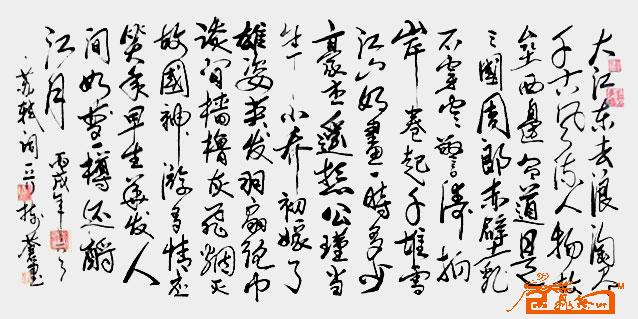 大江东去浪淘尽
千古风流人物故
垒西邊人道是
三國周郎赤壁乱
石穿空驚涛拍
岸卷起千堆雪
江山如畫一時多少
豪杰遥想公瑾当
年小乔初嫁了
雄姿英发羽扇纶巾
谈间樯橹灰飞烟灭
故國神游多情应
笑我早生华发人
间如梦一樽还酹
江月
苏轼词
丙戌年